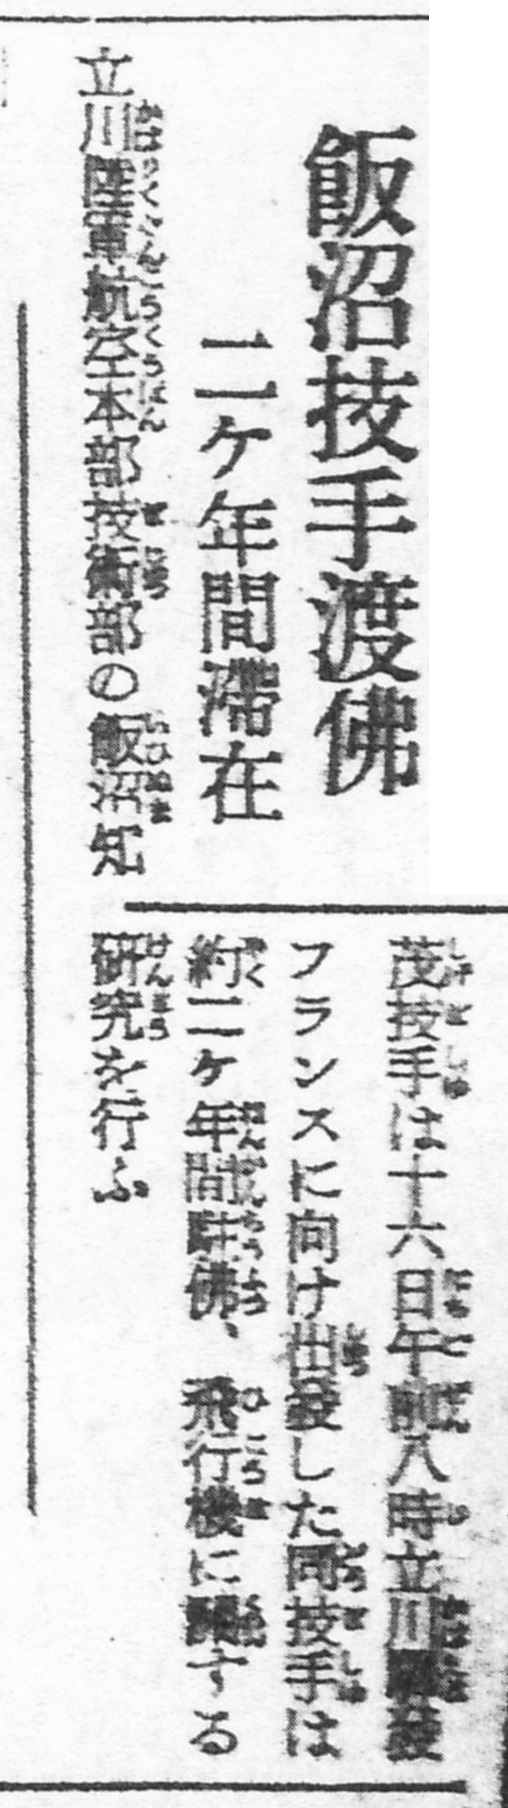 飯沼技手渡佛
二ケ年間滯在
立川陸軍航空本部技術部の飯沼知
茂技手は十六日午前八時立川驛發
フランスに向け出發した同技手は
約二ケ年間駐佛、飛行機に關する
研究を行ふ